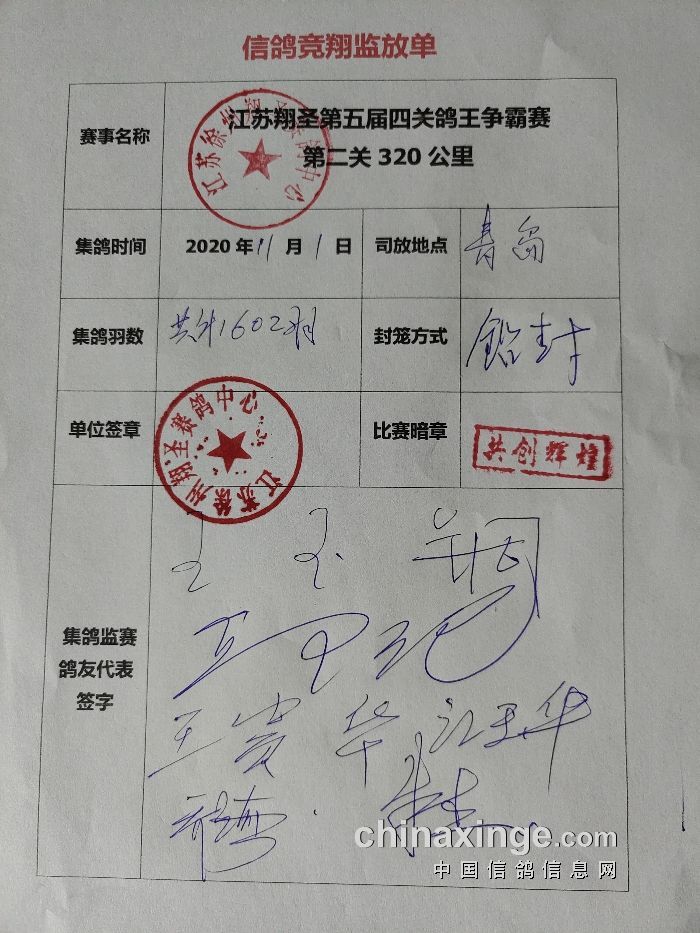 信鸽竞翔监放单
赛事名称
江苏翔圣第五届四关鸽王争霸赛
第二关 320 公里
江苏徐州翔圣赛鸽中心
集鸽时间
2020 年 11 月 1 日
司放地点
青岛
集鸽羽数
共计1602羽
封笼方式
铅封
单位签章
江苏徐州翔圣赛鸽中心
比赛暗章
共创辉煌
集鸽监赛
鸽友代表
签字
王贵华
chinaxinge.com
中国信鸽信息网